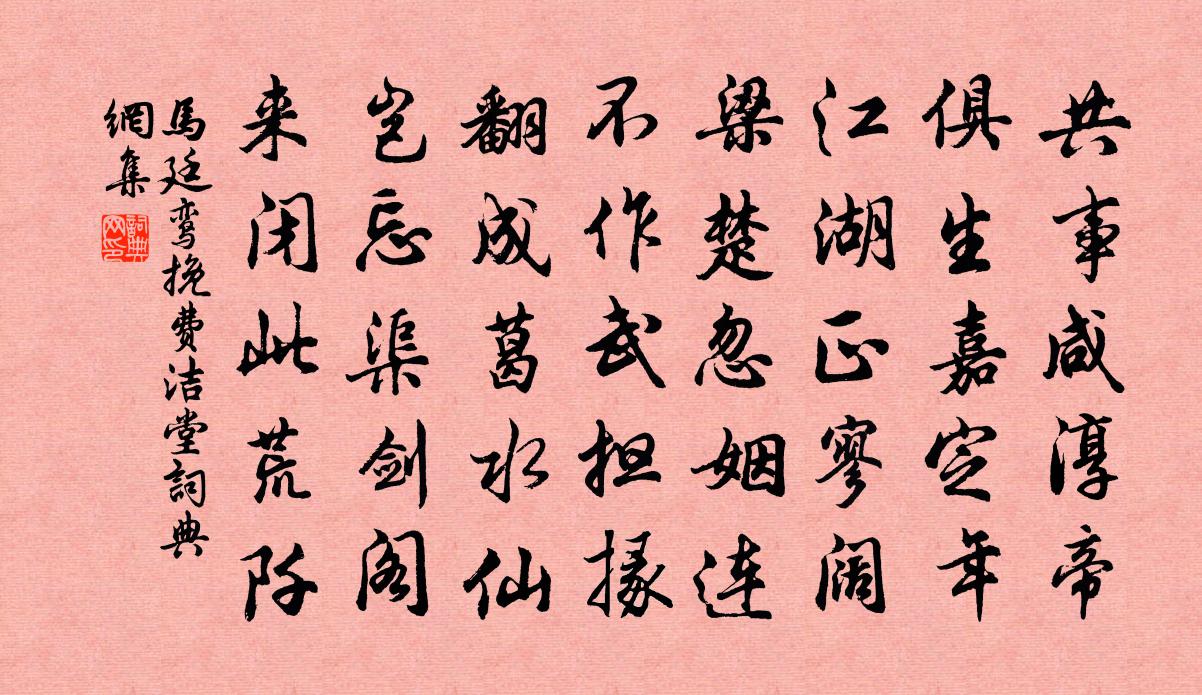 共事咸淳帝
俱生嘉定年
江湖正寥阔
梁楚忽姻连
不作武担掾
翻成葛水仙
岂忘渠剑阁
来闭此荒阡
馬廷鸾挽費洁堂詞典
網集
詞典
网印